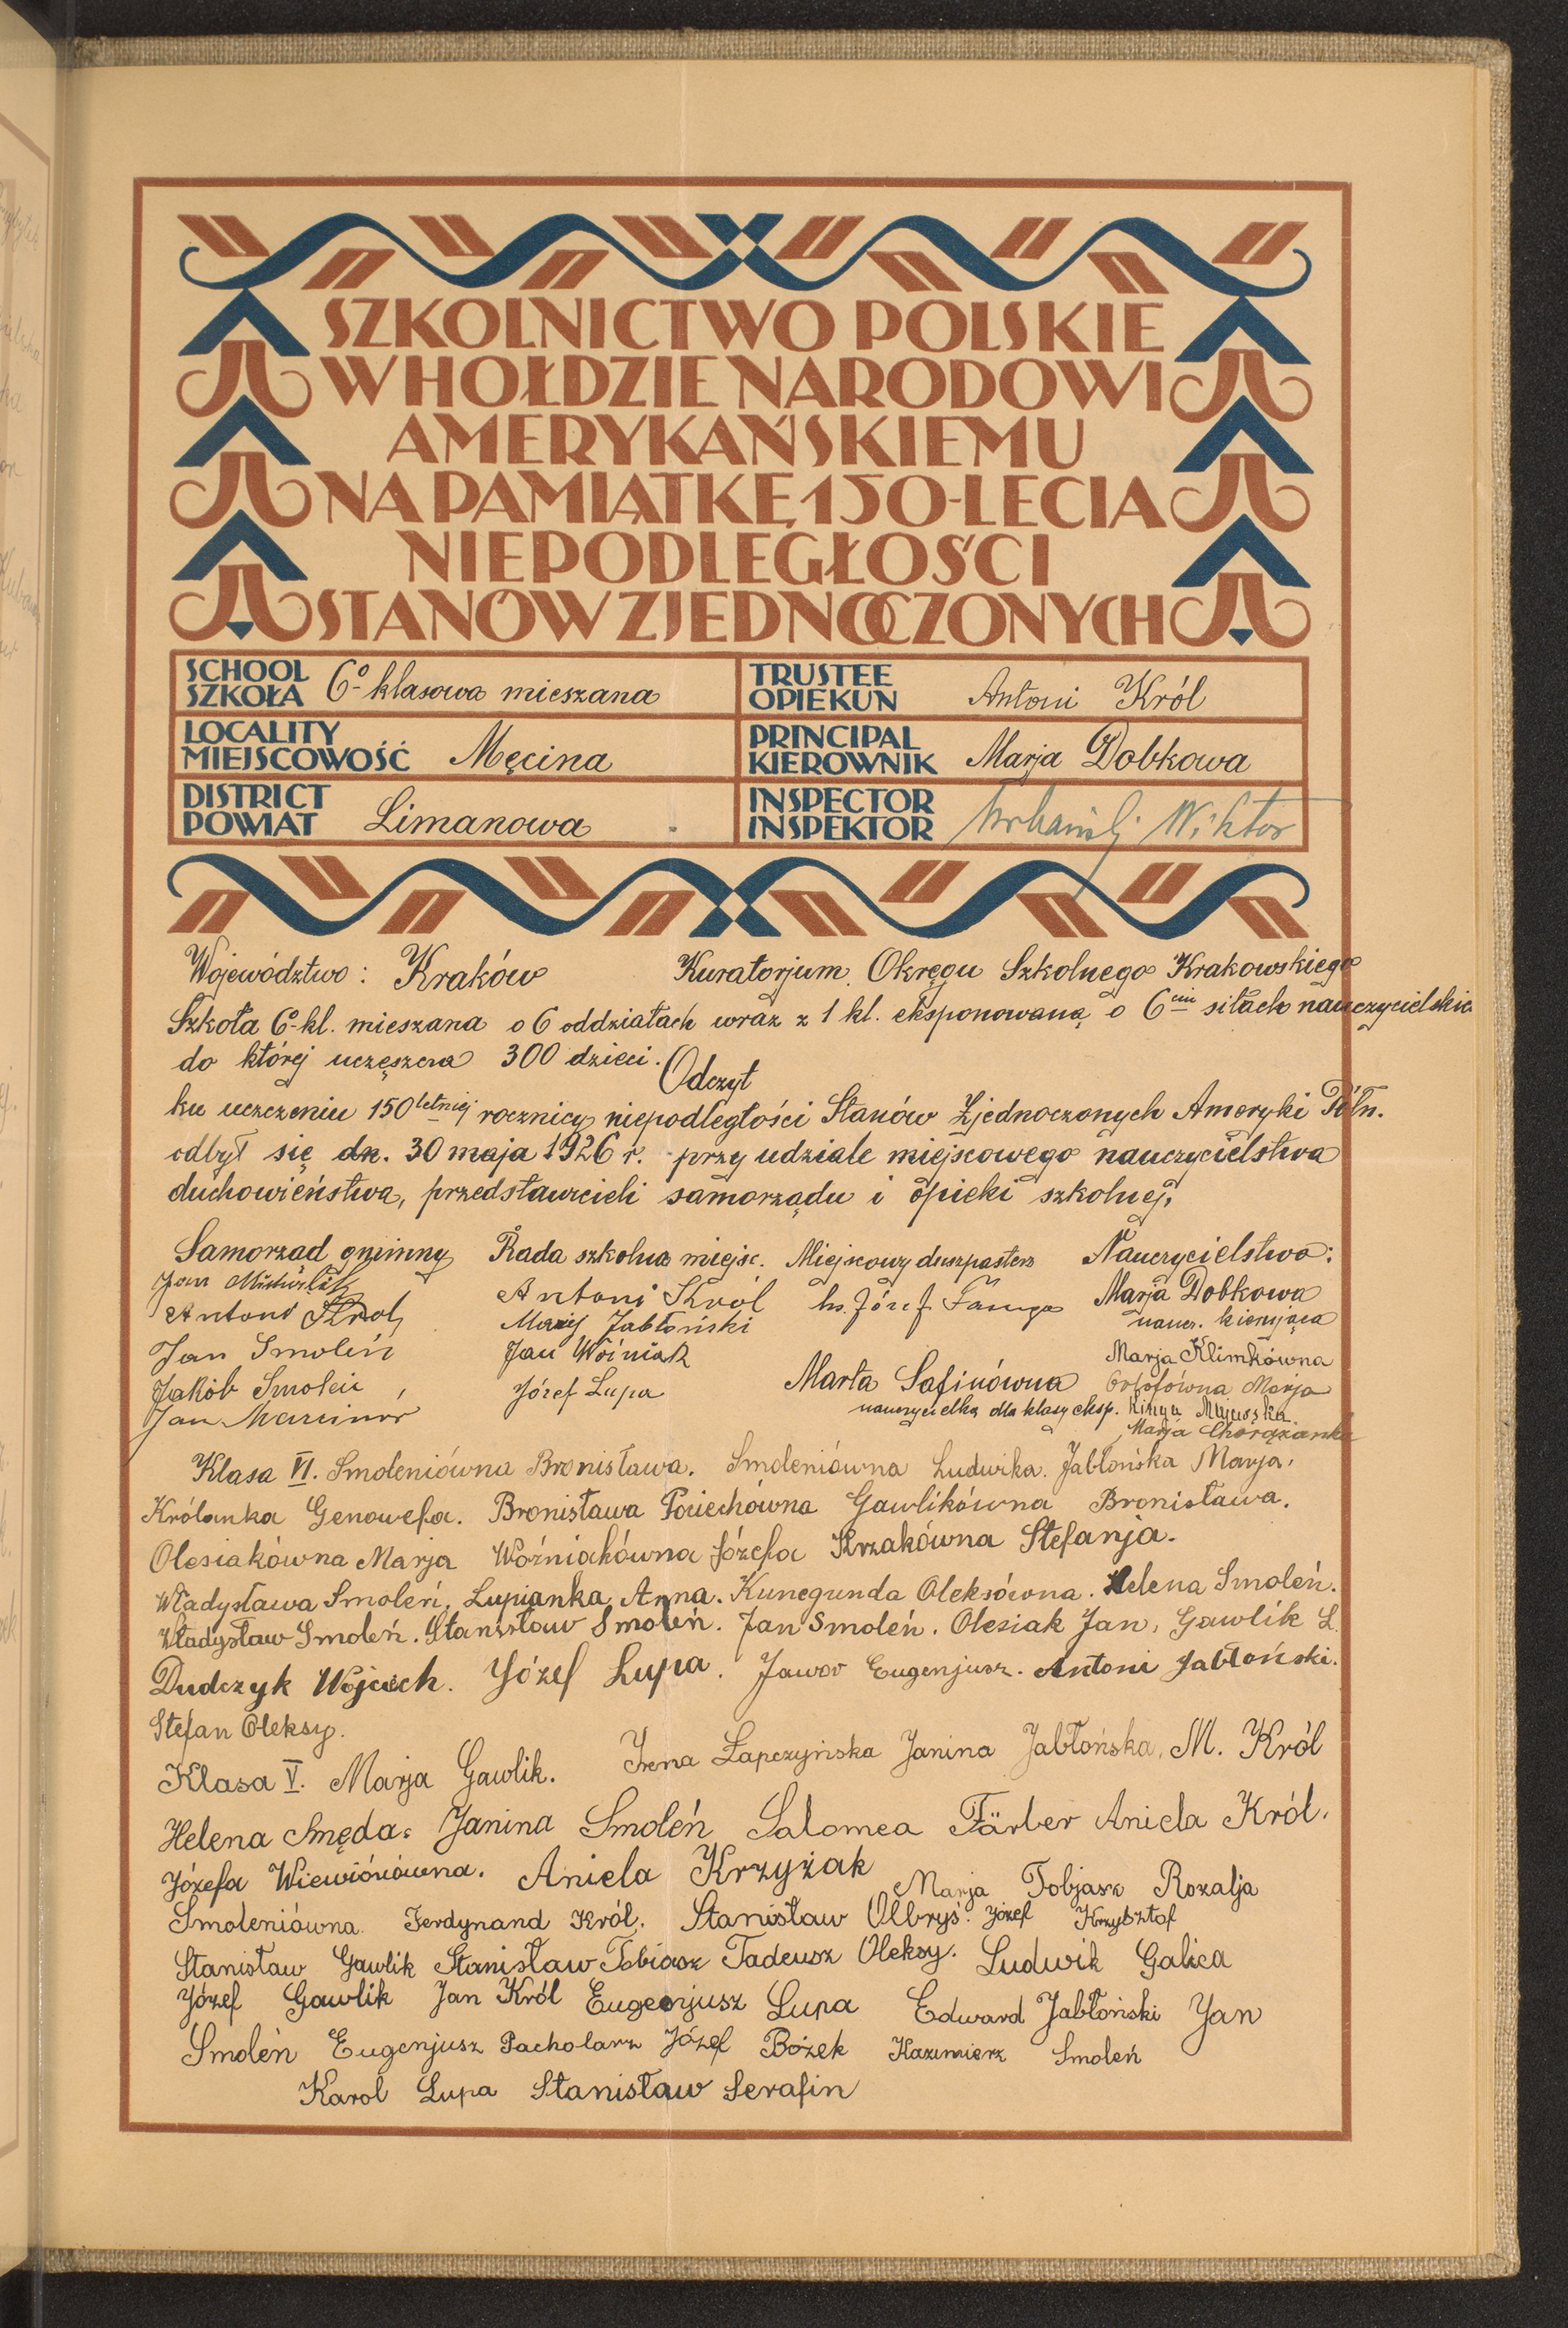 SZKOLNICTWO POLSKIE
W HOŁDZIE NARODOWI
AMERYKAŃSKIEMU
NA PAMIĄTKĘ 150-LECIA
NIEPODLEGŁOŚCI
STANÓW ZJEDNOCZONYCH
SCHOOL
SZKOŁA 6o klasowa mieszana
TRUSTEE
OPIEKUN Antoni Król
LOCALITY
MIEJSCOWOŚĆ Męcina
PRINCIPAL
KIEROWNIK Marja Dobkowa
DISTRICT
POWIAT Limanowa
INSPECTOR
INSPEKTOR Wiktor
Województwo: Kraków Kuratorjum Okręgu Szkolnego Krakowskiego
Szkoła 6o-kl. mieszana o 6 oddziałach wraz z 1 kl. eksponowaną o 6ciu siłach nauczycielskic
do której uczęszcza 300 dzieci.
Odczyt
ku uczczeniu 150letniej rocznicy niepodległości Stanów Zjednoczonych Ameryki Półn.
odbył się dn. 30 maja 1926 r. przy udziale miejscowego nauczycielstwa
duchowieństwa, przedstawicieli samorządu i opieki szkolnej.
Samorząd gminny Rada szkolna miejsc. Miejscowy duszpasterz Nauczycielstwo:
Jan
Antoni Król
Jan Smoleń
Jakób Smoleń
Jan
Antoni Król
Jabłoński
Jan Woźniak
Józef Lupa
ks. Józef
Marta Safinówna
nauczycielka dla klasy eksp.
Marja Dobkowa
naucz. kierująca
Marja Klimkówna
Marja
Kinga Majewska
Marja Chorążanka
Klasa VI. Smoleniówna Bronisława. Smoleniówna Ludwika. Jabłońska Marja.
Królanka Genowefa. Bronisława Pociechówna Gawlikówna Bronisława.
Olesiakówna Marja Woźniakówna Józefa Krzakówna Stefanja.
Władysława Smoleń, Lupianka Anna. Kunegunda Oleksówna. Helena Smoleń.
Władysław Smoleń. Stanisław Smoleń. Jan Smoleń. Olesiak Jan, Gawlik S.
Dudczyk Wojciech. Józef Lupa. Jawor Eugenjusz. Antoni Jabłoński.
Stefan Oleksy.
Klasa V. Marja Gawlik. Irena Łapczyńska Janina Jabłońska, M. Król
Helena Smęda. Janina Smoleń Salomea Färber Aniela Król.
Józefa Wiewiórówna. Aniela Krzyżak Marja Tobjasz Rozalja
Smoleniówna Ferdynand Król. Stanisław Olbryś. Józef Krzysztof
Stanisław Gawlik Stanisław Tobiasz Tadeusz Oleksy. Ludwik Galica
Józef Gawlik Jan Król Eugenjusz Lupa Edward Jabłoński Jan
Smoleń Eugenjusz Pacholarz Józef Bożek Kazimierz Smoleń
Karol Lupa Stanisław Serafin